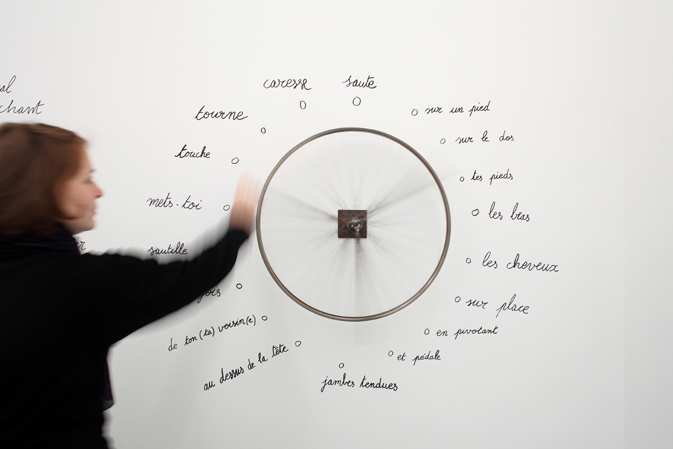 al
chant
caresse
saute
tourne
sur un pied
touche
sur le dos
tes pieds
mets-toi
les bras
sautille
les cheveux
sur place
de ton (ta) voisin(e)
en pivotant
au dessus de la tête
et pédale
jambes tendues